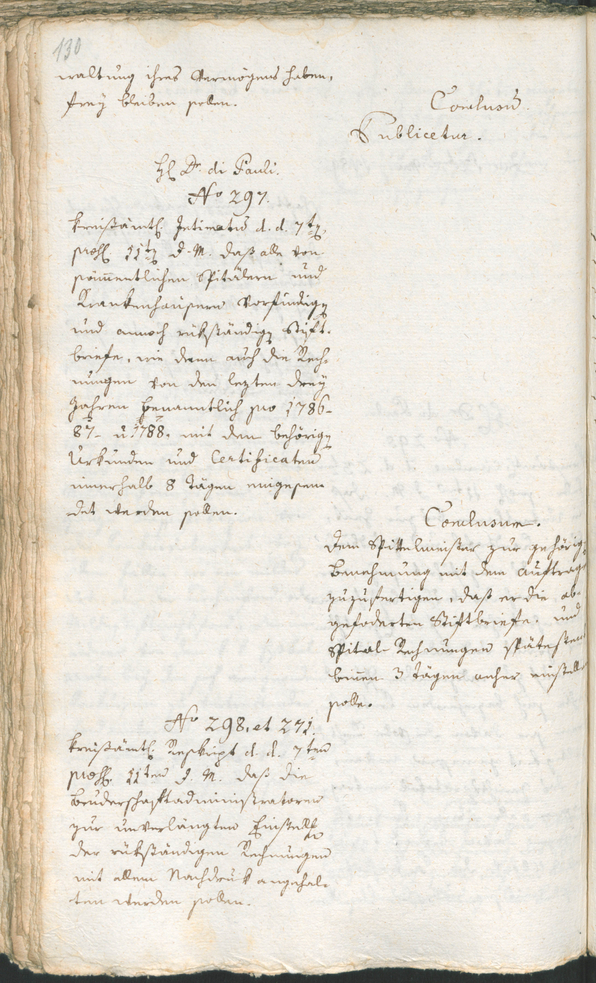 130
waltung ihres Vermögens haben,
frey bleiben sollen.
Conclusum
Publicetur.
H. Dr. di Pauli.
No 297.
Kreisämtl. Intimatum d. d. 7ten
praes. 11ten d. M. daß alle von
sämmentlichen Spitälern und
Krankenhäusern vorfindige
und annoch rükständige Stift-
briefe, wie dann auch die Rech-
nungen von den lezten drey
Jahren benanntlich pro 1786-
87- u. 1788. mit den behörigen
Urkunden und Certificaten
innerhalb 8 Tägen eingesen-
det werden sollen.
Conclusum.
Dem Spittelmeister zur gehörigen
Benehmung mit dem Auftrage
zuzufertigen, daß er die ab-
gefoderten Stiftbriefe, und
Spital-Rechnungen spätestens
binnen 3 Tägen anher einstellen
solle.
No 298. et 271.
Kreisämtl. Reskript d. d. 7ten
praes. 11ten d. M. daß die
Bruderschaftadministratoren
zur unverlängten Einstellung
der rükständigen Rechnungen
mit allem Nachdruk angehal-
ten werden sollen.